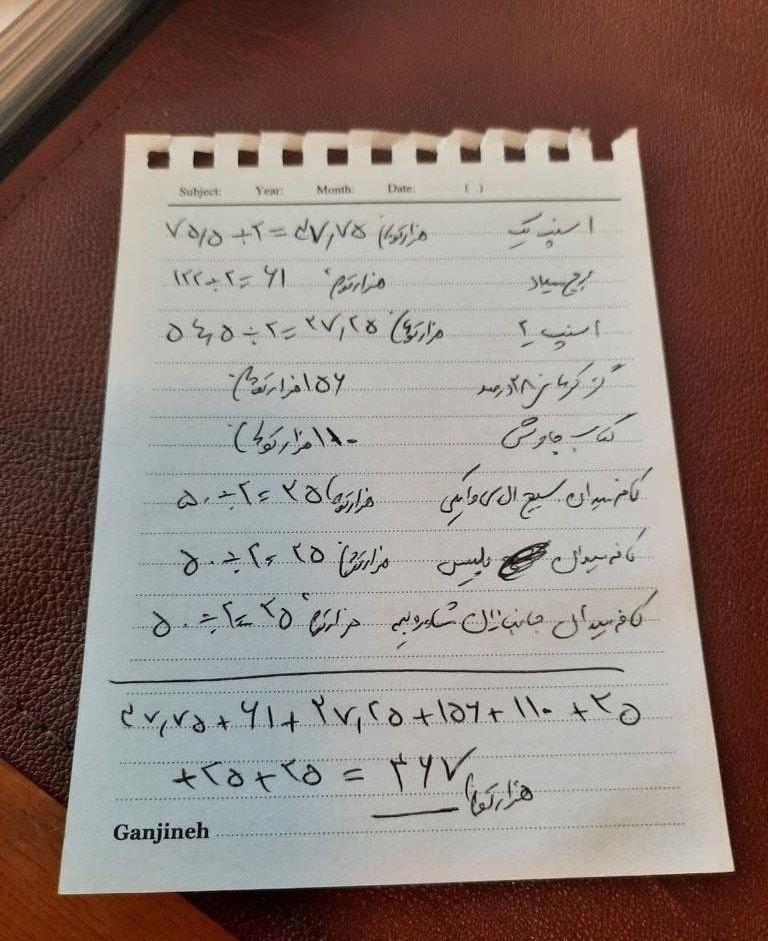 Subject: Year: Month: Date: ( )
اسنپ یک ۷۵,۵ ÷ ۲ = ۳۷,۷۵ هزار تومان
برج میلاد ۱۲۲ ÷ ۲ = ۶۱ هزار تومان
اسنپ ۲ ۵۴,۵ ÷ ۲ = ۲۷,۲۵ هزار تومان
گز کرمانی ۲۸ درصد ۱۵۶ هزار تومان
کتاب چاوشی ۱۱۰ هزار تومان
کافه میدان بسیج ال سی وایکیکی ۵۰ ÷ ۲ = ۲۵ هزار تومان
کافه میدان پلیس ۵۰ ÷ ۲ = ۲۵ هزار تومان
کافه میدان جانبازان ۵۰ ÷ ۲ = ۲۵ هزار تومان
۳۷,۷۵ + ۶۱ + ۲۷,۲۵ + ۱۵۶ + ۱۱۰ + ۲۵
+ ۲۵ + ۲۵ = ۴۶۷ هزار تومان
Ganjineh